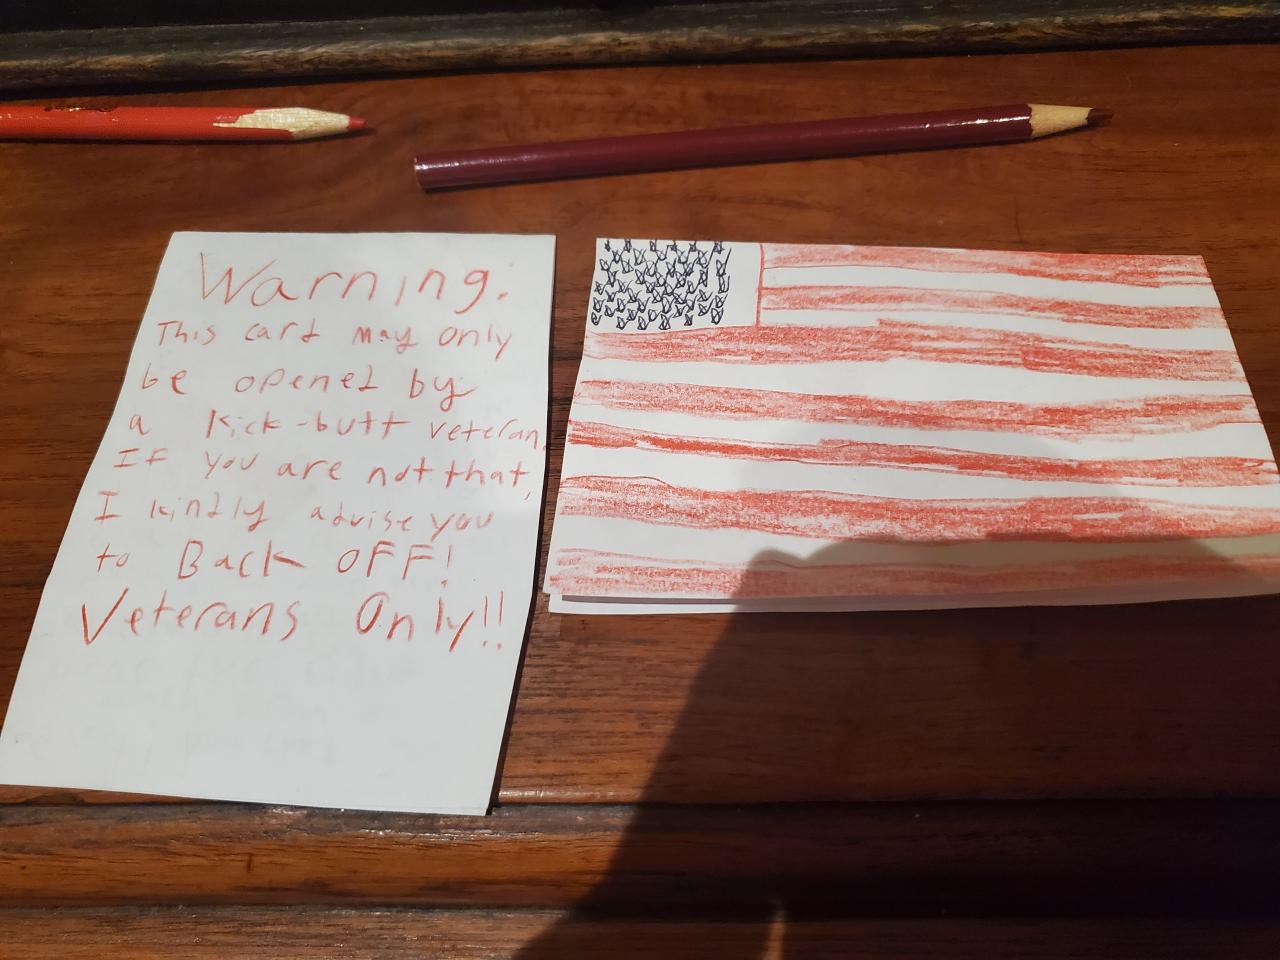 Warning:
This card may only
be opened by
a kick-butt veteran.
If you are not that,
I kindly advise you
to Back OFF!
Veterans Only!!